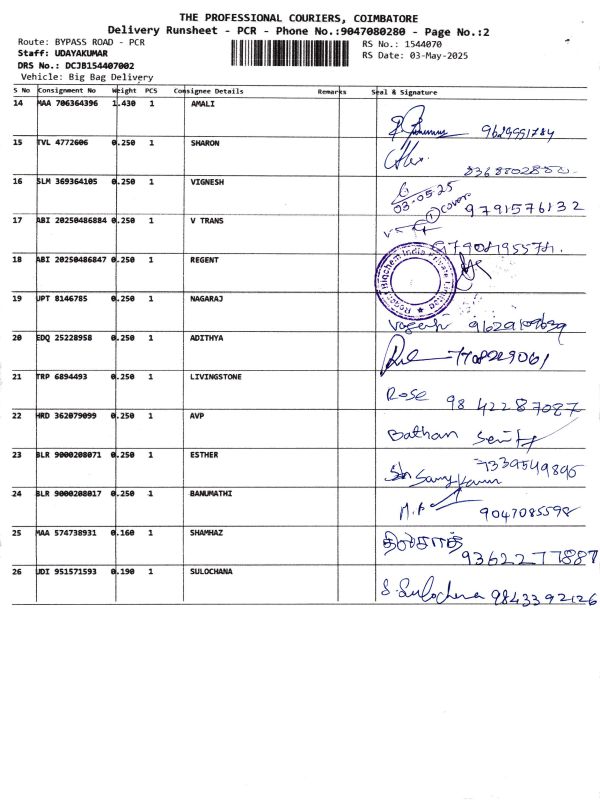 THE PROFESSIONAL COURIERS, COIMBATORE
Delivery Runsheet - PCR - Phone No.:9047080280 - Page No.:2
Route: BYPASS ROAD - PCR
RS No.: 1544070
Staff: UDAYAKUMAR
RS Date: 03-May-2025
DRS No.: DCJB154407002
Vehicle: Big Bag Delivery
S No Consignment No Weight PCS Consignee Details Remarks Seal & Signature
14 MAA 706364396 1.430 1 AMALI
15 TVL 4772606 0.250 1 SHARON
16 SLM 369364105 0.250 1 VIGNESH
03-05-25
① cover 9791576132
17 ABI 20250486884 0.250 1 V TRANS
18 ABI 20250486847 0.250 1 REGENT
Regent Biochem India Private Limited
19 JPT 8146785 0.250 1 NAGARAJ
20 EDQ 25228958 0.250 1 ADITHYA
21 TRP 6894493 0.250 1 LIVINGSTONE
Rose 98 42287087
22 HRD 362079099 0.250 1 AVP
23 BLR 9000208071 0.250 1 ESTHER
7339549895
24 BLR 9000208017 0.250 1 BANUMATHI
9047085598
25 MAA 574738931 0.160 1 SHAMHAZ
9362277887
26 UDI 951571593 0.190 1 SULOCHANA
S. Sulochana 9843392126